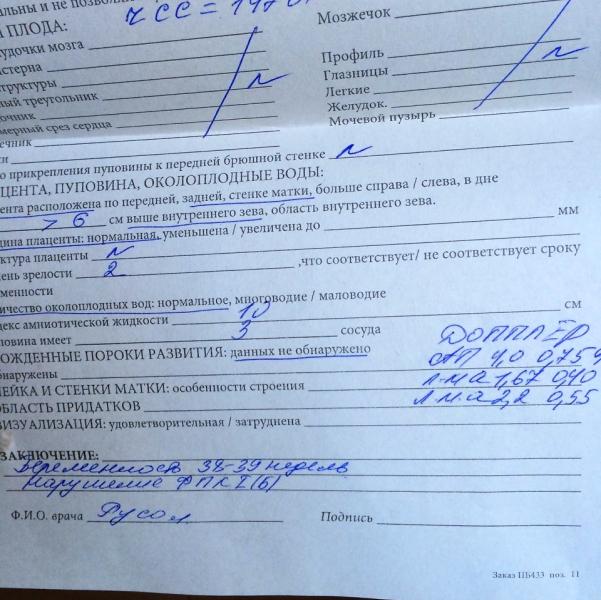 альны и не позволя
ЧСС = 147
ПЛОДА:
Мозжечок
удочки мозга
стерна
Профиль
труктуры N
Глазницы N
ный треугольник
Легкие
очник
Желудок.
мерный срез сердца
Мочевой пузырь
ечник
о прикрепления пуповины к передней брюшной стенке N
ЦЕНТА, ПУПОВИНА, ОКОЛОПЛОДНЫЕ ВОДЫ:
ента расположена по передней, задней, стенке матки, больше справа / слева, в дне
> 6 см выше внутреннего зева, область внутреннего зева.
щина плаценты: нормальная, уменьшена / увеличена до мм
ктура плаценты N
ень зрелости 2 ,что соответствует/ не соответствует сроку
еменности
ичество околоплодных вод: нормальное, многоводие / маловодие
екс амниотической жидкости 10 см
повина имеет 3 сосуда
ДОППЛЕР
ОЖДЕННЫЕ ПОРОКИ РАЗВИТИЯ: данных не обнаружено
АП 4,0 0,75
бнаружены
Л-МА 1,67 0,40
ЕЙКА И СТЕНКИ МАТКИ: особенности строения
Л МА 2,2 0,55
БЛАСТЬ ПРИДАТКОВ
ВИЗУАЛИЗАЦИЯ: удовлетворительная / затруднена
ЗАКЛЮЧЕНИЕ:
Беременность 38-39 недель
Нарушение ФПК I (б)
Ф.И.О. врача Русол
Подпись
Заказ ПБ433 поз. 11